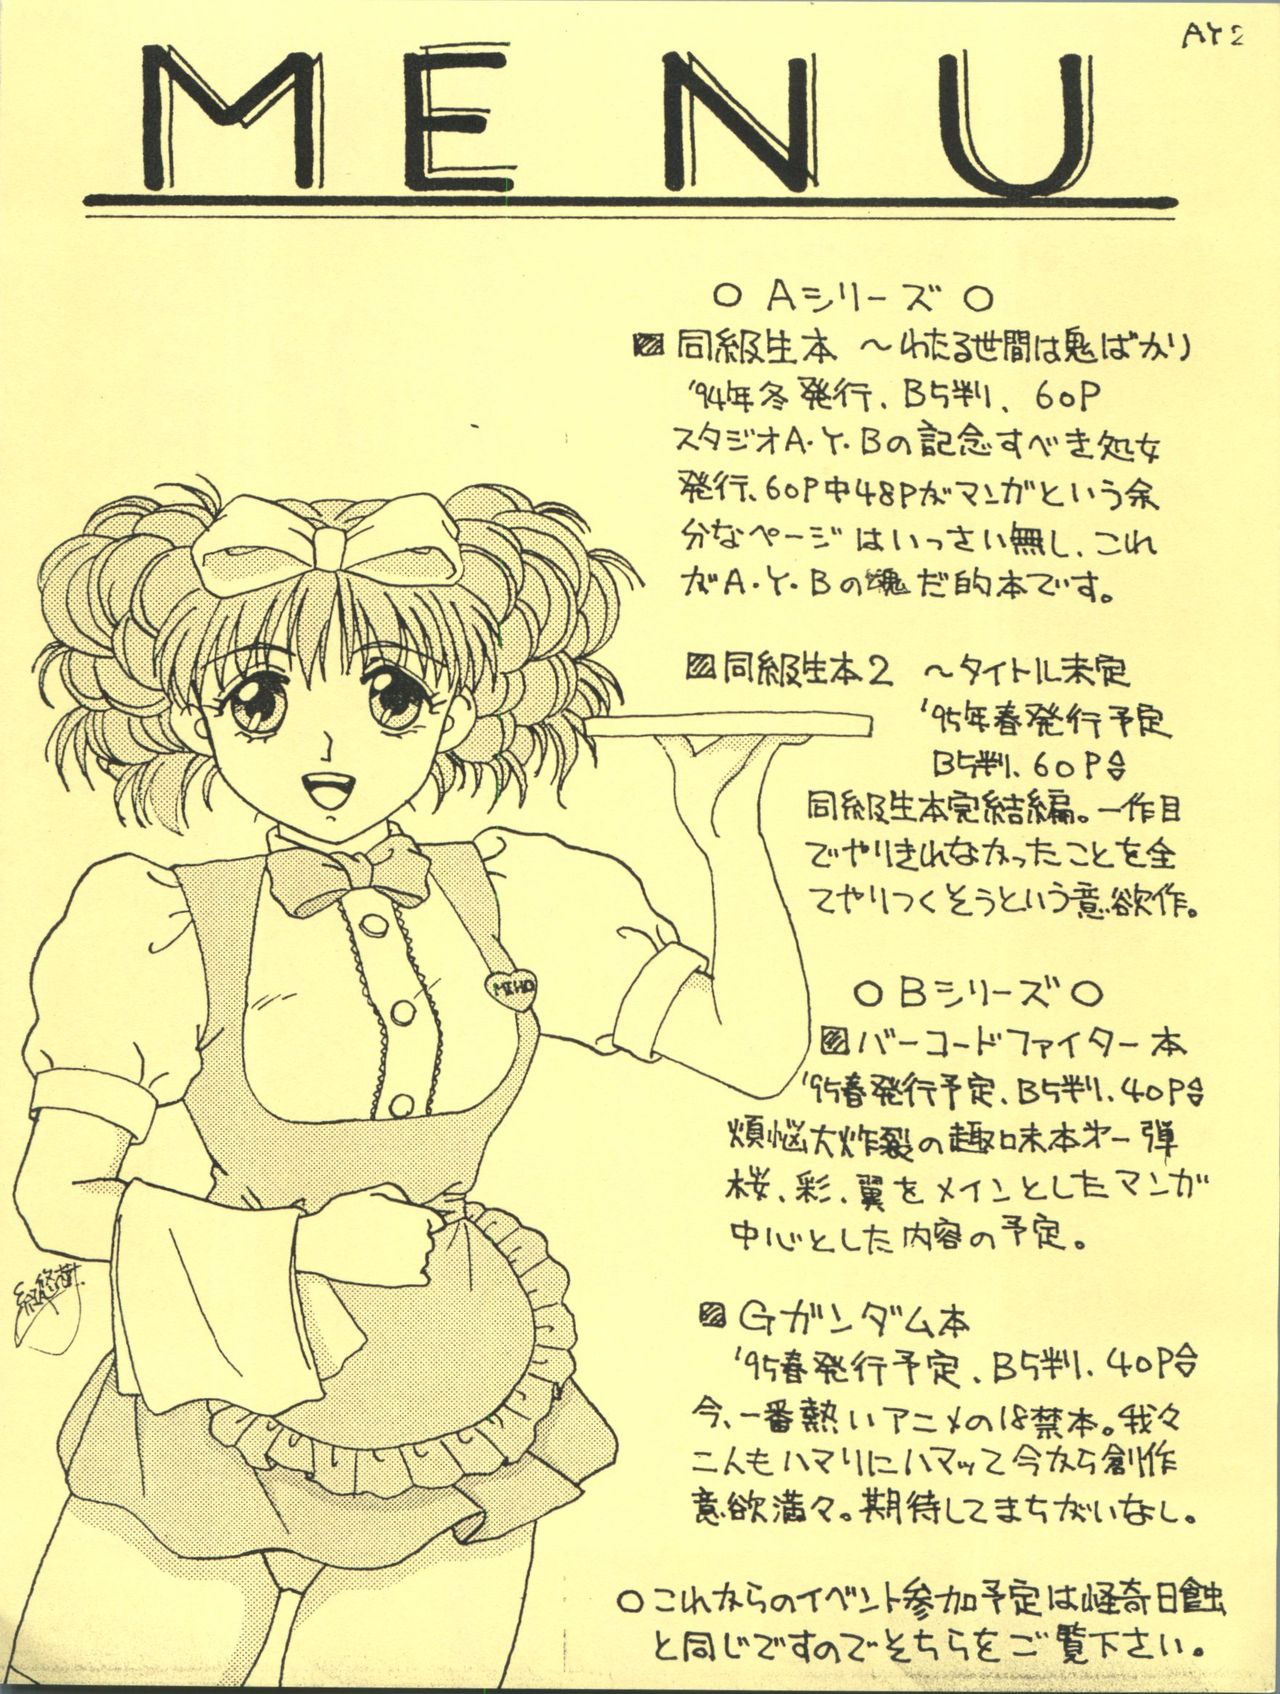 AY2
MENU
○ Aシリーズ ○
▨同級生本 ～わたる世間は鬼ばかり
'94年冬発行、B5判、60P
スタジオA・Y・Bの記念すべき処女
発行、60P中48Pがマンガという余
分なページはいっさい無し、これ
がA・Y・Bの魂だ的本です。
▨同級生本2 ～タイトル未定
'95年春発行予定
B5判、60P
同級生本完結編。一作目
でやりきれなかったことを全
てやりつくそうという意欲作。
○ Bシリーズ ○
▨バーコードファイター本
'95春発行予定、B5判、40P
煩悩大炸裂の趣味本第一弾
桜、彩、翼をメインとしたマンガ
中心とした内容の予定。
▨Gガンダム本
'95春発行予定、B5判、40P
今、一番熱いアニメの18禁本。我々
二人もハマリにハマッて今から創作
意欲満々。期待してまちがいなし。
○これからのイベント参加予定は怪奇日蝕
と同じですのでそちらをご覧下さい。
MIHO